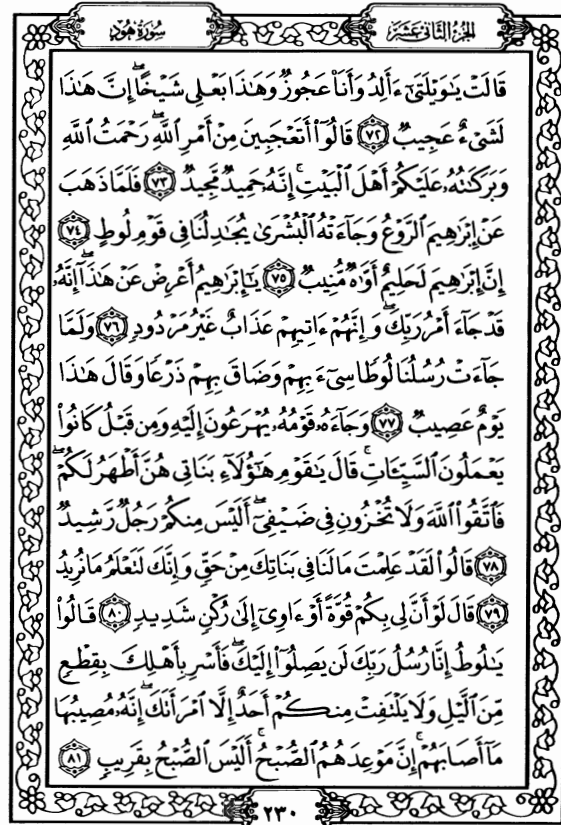 الجزء الثاني عشر
سورة هود
قَالَتْ يَٰوَيْلَتَىٰٓ ءَأَلِدُ وَأَنَا۠ عَجُوزٌ وَهَٰذَا بَعْلِى شَيْخًا ۖ إِنَّ هَٰذَا
لَشَىْءٌ عَجِيبٌ ٧٢ قَالُوٓا۟ أَتَعْجَبِينَ مِنْ أَمْرِ ٱللَّهِ ۖ رَحْمَتُ ٱللَّهِ
وَبَرَكَٰتُهُۥ عَلَيْكُمْ أَهْلَ ٱلْبَيْتِ ۚ إِنَّهُۥ حَمِيدٌ مَّجِيدٌ ٧٣ فَلَمَّا ذَهَبَ
عَنْ إِبْرَٰهِيمَ ٱلرَّوْعُ وَجَآءَتْهُ ٱلْبُشْرَىٰ يُجَٰدِلُنَا فِى قَوْمِ لُوطٍ ٧٤
إِنَّ إِبْرَٰهِيمَ لَحَلِيمٌ أَوَّٰهٌ مُّنِيبٌ ٧٥ يَٰٓإِبْرَٰهِيمُ أَعْرِضْ عَنْ هَٰذَآ ۖ إِنَّهُۥ
قَدْ جَآءَ أَمْرُ رَبِّكَ ۖ وَإِنَّهُمْ ءَاتِيهِمْ عَذَابٌ غَيْرُ مَرْدُودٍ ٧٦ وَلَمَّا
جَآءَتْ رُسُلُنَا لُوطًا سِىٓءَ بِهِمْ وَضَاقَ بِهِمْ ذَرْعًا وَقَالَ هَٰذَا
يَوْمٌ عَصِيبٌ ٧٧ وَجَآءَهُۥ قَوْمُهُۥ يُهْرَعُونَ إِلَيْهِ وَمِن قَبْلُ كَانُوا۟
يَعْمَلُونَ ٱلسَّيِّـَٔاتِ ۚ قَالَ يَٰقَوْمِ هَٰٓؤُلَآءِ بَنَاتِى هُنَّ أَطْهَرُ لَكُمْ ۖ
فَٱتَّقُوا۟ ٱللَّهَ وَلَا تُخْزُونِ فِى ضَيْفِىٓ ۖ أَلَيْسَ مِنكُمْ رَجُلٌ رَّشِيدٌ
٧٨ قَالُوا۟ لَقَدْ عَلِمْتَ مَا لَنَا فِى بَنَاتِكَ مِنْ حَقٍّ وَإِنَّكَ لَتَعْلَمُ مَا نُرِيدُ
٧٩ قَالَ لَوْ أَنَّ لِى بِكُمْ قُوَّةً أَوْ ءَاوِىٓ إِلَىٰ رُكْنٍ شَدِيدٍ ٨٠ قَالُوا۟
يَٰلُوطُ إِنَّا رُسُلُ رَبِّكَ لَن يَصِلُوٓا۟ إِلَيْكَ ۖ فَأَسْرِ بِأَهْلِكَ بِقِطْعٍ
مِّنَ ٱلَّيْلِ وَلَا يَلْتَفِتْ مِنكُمْ أَحَدٌ إِلَّا ٱمْرَأَتَكَ ۖ إِنَّهُۥ مُصِيبُهَا
مَآ أَصَابَهُمْ ۚ إِنَّ مَوْعِدَهُمُ ٱلصُّبْحُ ۚ أَلَيْسَ ٱلصُّبْحُ بِقَرِيبٍ ٨١
٢٣٠